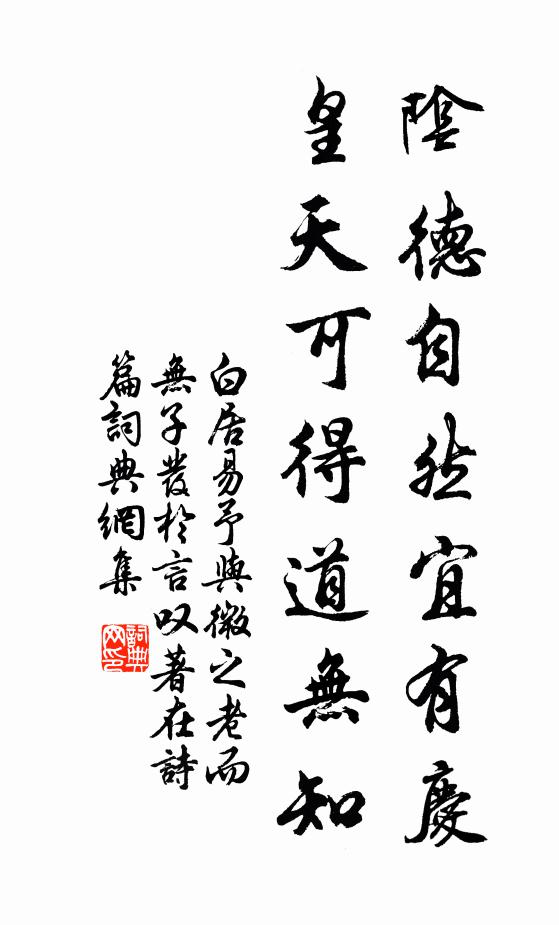 陰德自然宜有慶
皇天可得道無知
白居易予與微之老而
無子發於言叹著在詩
篇詞典網集
詞典网印